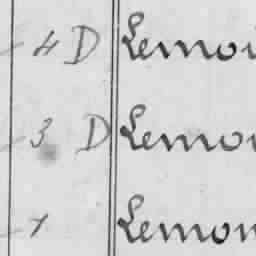 4 D Lemoi
3 D Lemoi
1 Lemon